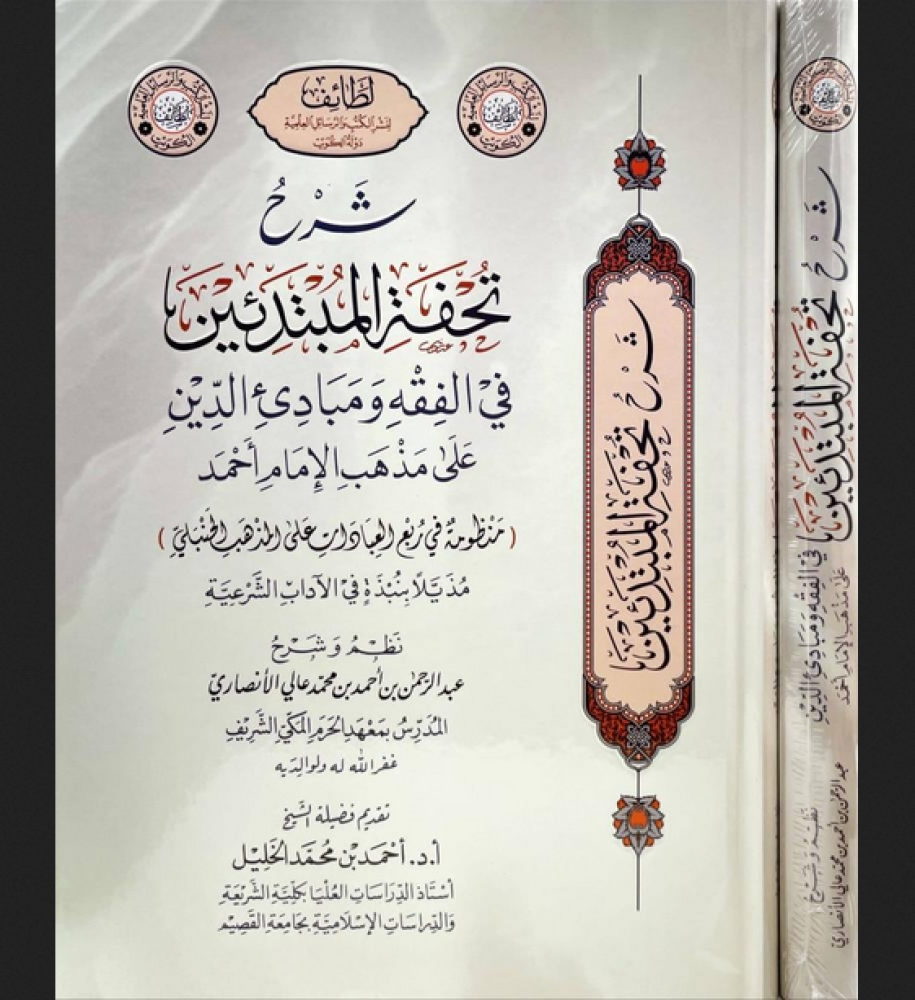 لطائف
لنشر الكتب والرسائل العلمية
دولة الكويت
شَرْحُ
تُحْفَةِ الْمُبْتَدِئِينَ
فِي الْفِقْهِ وَمَبَادِئِ الدِّيْنِ
عَلَى مَذْهَبِ الْإِمَامِ أَحْمَدَ
(مَنْظُومَةٌ فِي رُبْعِ الْعِبَادَاتِ عَلَى الْمَذْهَبِ الْحَنْبَلِيِّ)
مُذَيَّلًا بِنُبْذَةٍ فِي الْآدَابِ الشَّرْعِيَّةِ
نَظْمُ وَشَرْحُ
عبد الرحمن بن أحمد بن محمد عالي الأنصاري
المُدَرِّسُ بِمَعْهَدِ الْحَرَمِ الْمَكِّيِّ الشَّرِيْفِ
غفر الله له ولوالديه
تقديم فضيلة الشيخ
أ.د. أَحْمَد بْن مُحَمَّد الخَلِيْل
أُسْتَاذ الدِّرَاسَات العُلْيَا بِكُلِّيَّةِ الشَّرِيْعَةِ
وَالدِّرَاسَاتِ الإِسْلَامِيَّةِ بِجَامِعَةِ القَصِيْم
شَرْحُ تُحْفَةِ الْمُبْتَدِئِينَ
شَرْحُ تُحْفَةِ الْمُبْتَدِئِينَ
فِي الْفِقْهِ وَمَبَادِئِ الدِّيْنِ
عَلَى مَذْهَبِ الْإِمَامِ أَحْمَدَ
نَظْمُ وَشَرْحُ
عبد الرحمن بن أحمد بن محمد عالي الأنصاري